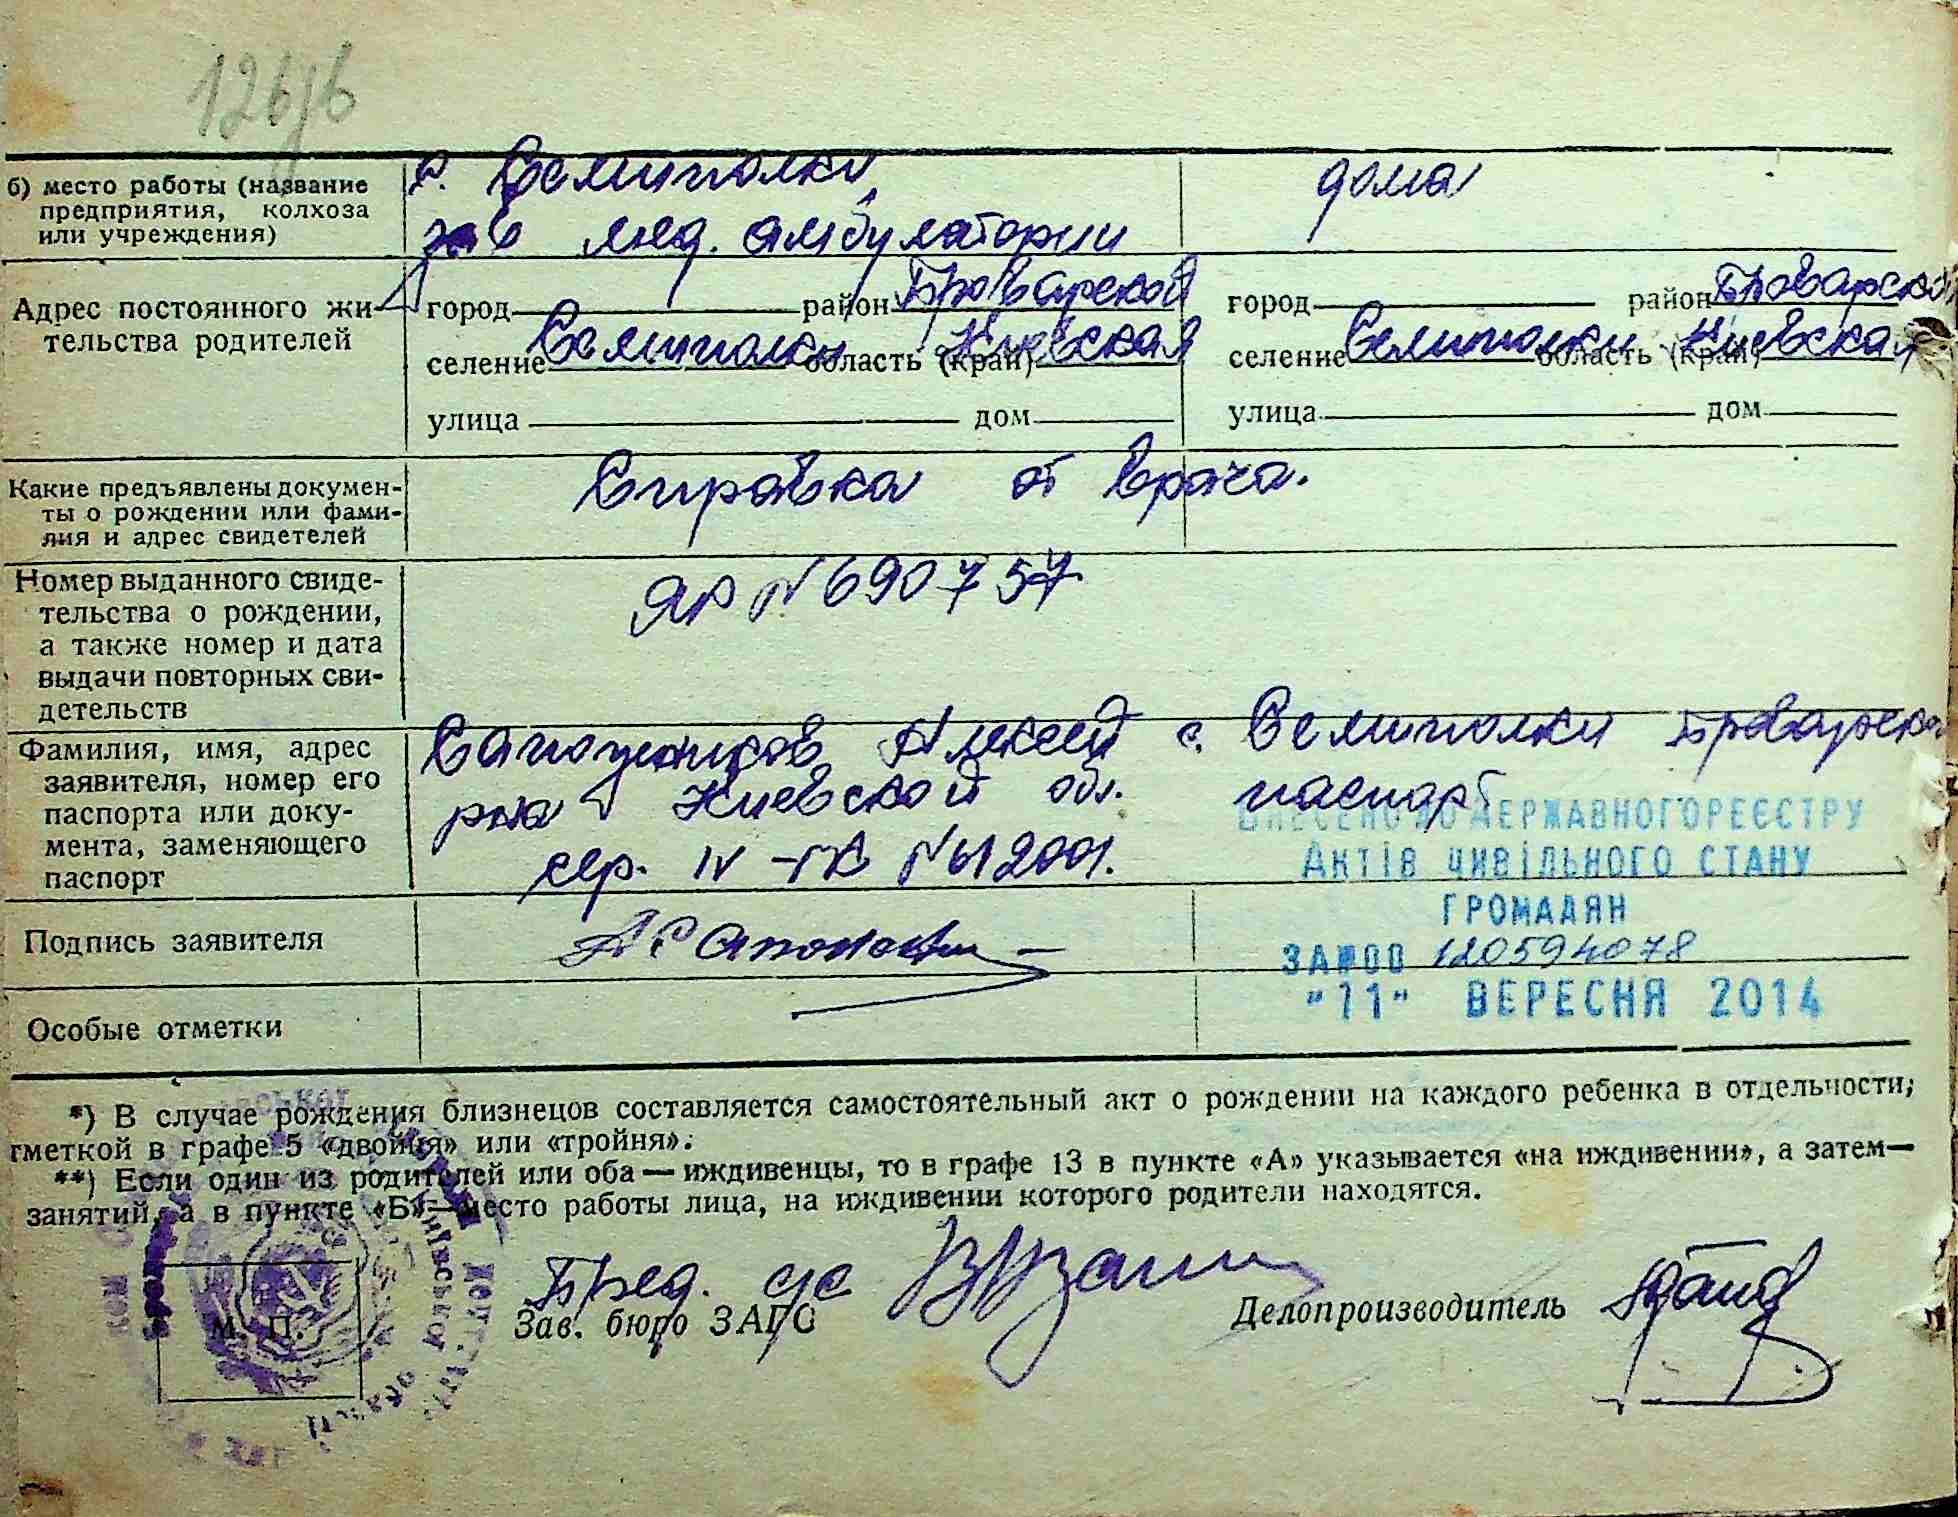 126/6
б) место работы (название предприятия, колхоза или учреждения)
с. Семиполки
зав мед. амбулатории
дома
Адрес постоянного жительства родителей
город район Броварской
селение Семиполки область (край) Киевская
улица дом
город район Броварской
селение Семиполки область (край) Киевская
улица дом
Какие предъявлены документы о рождении или фамилия и адрес свидетелей
Справка от врача.
Номер выданного свидетельства о рождении, а также номер и дата выдачи повторных свидетельств
ЯР № 690757
Фамилия, имя, адрес заявителя, номер его паспорта или документа, заменяющего паспорт
Сапожников Алексей с. Семиполки Броварско
р-на Киевской обл. паспорт
сер. IV
Подпись заявителя
Особые отметки
ВНЕСЕНО ДО ДЕРЖАВНОГО РЕЄСТРУ
АКТІВ ЦИВІЛЬНОГО СТАНУ
ГРОМАДЯН
ЗА №00 120594078
"11" ВЕРЕСНЯ 2014
*) В случае рождения близнецов составляется самостоятельный акт о рождении на каждого ребенка в отдельности,
тметкой в графе 5 «двойня» или «тройня».
**) Если один из родителей или оба — иждивенцы, то в графе 13 в пункте «А» указывается «на иждивении», а затем—
занятий, а в пункте «Б»—место работы лица, на иждивении которого родители находятся.
М. П.
Пред. с/с
Зав. бюро ЗАГС
Делопроизводитель